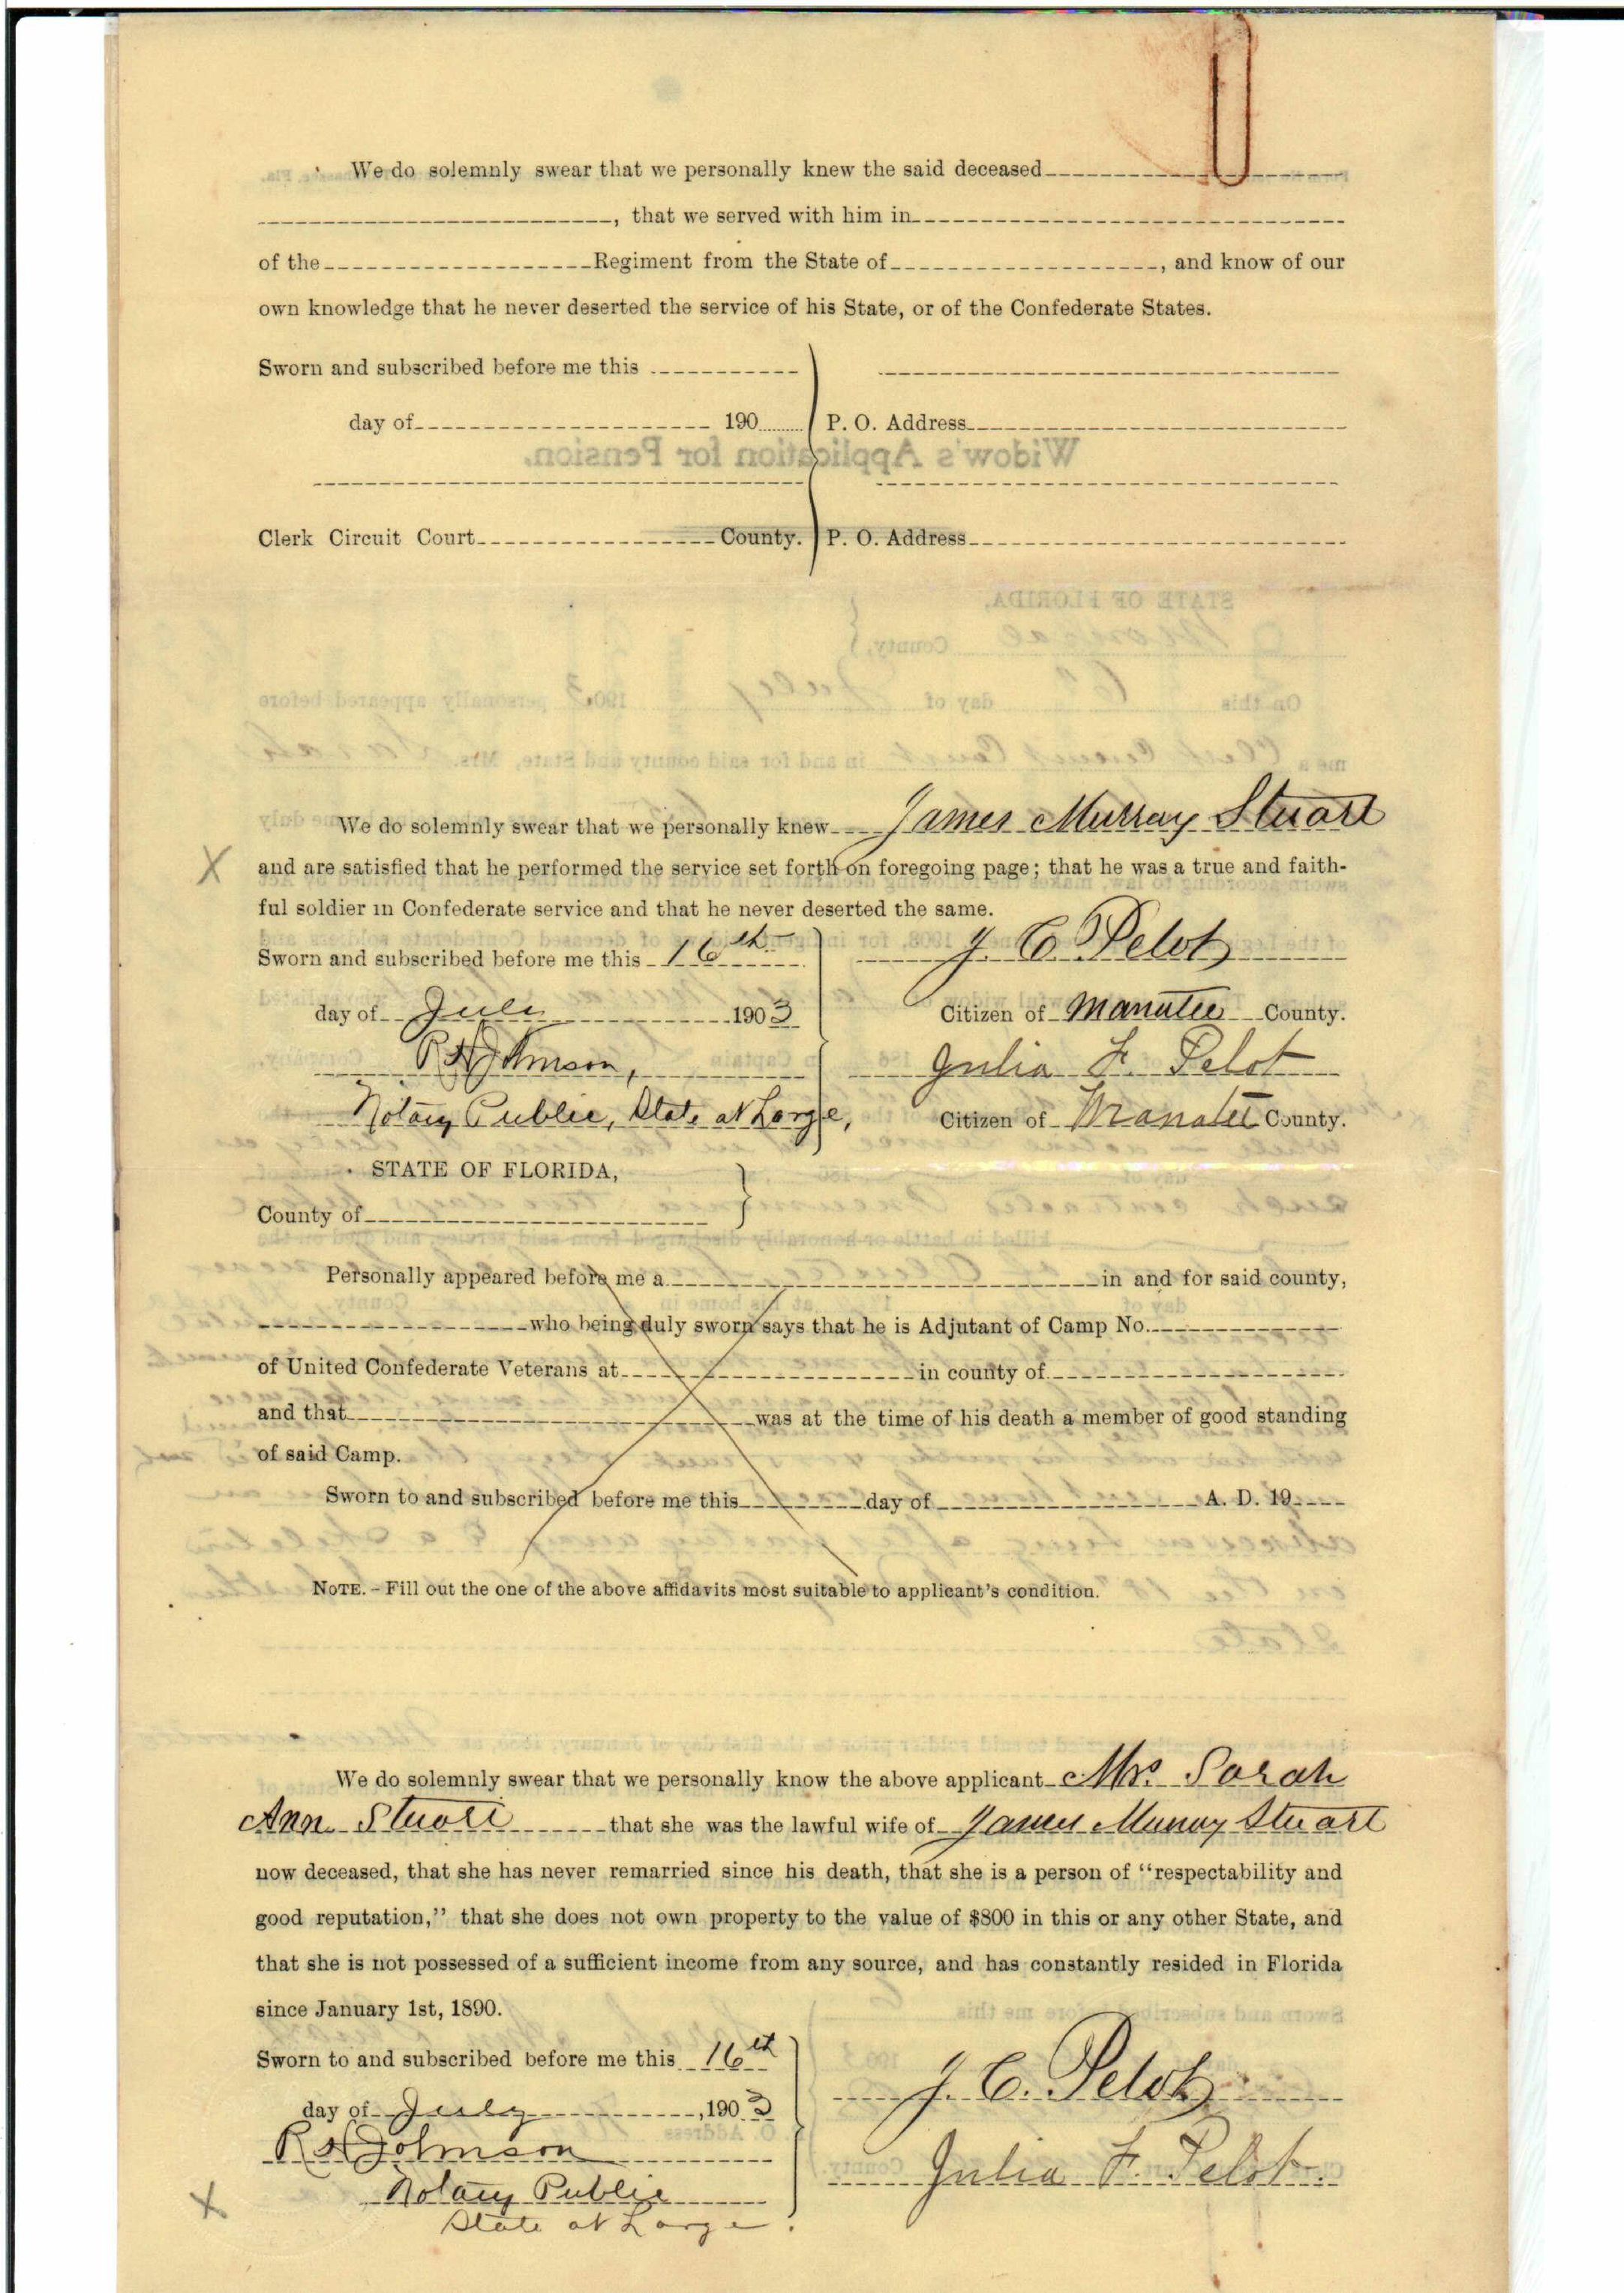 We do solemnly swear that we personally knew the said deceased
, that we served with him in
of the Regiment from the State of , and know of our
own knowledge that he never deserted the service of his State, or of the Confederate States.
Sworn and subscribed before me this
day of 190 P. O. Address
Widow's Application for Pension.
Clerk Circuit Court County. P. O. Address
STATE OF FLORIDA,
County,
On this 6 day of July 1903 personally appeared before
in and for said county and State, Mrs. Sarah
We do solemnly swear that we personally knew James Murray Stuart
and are satisfied that he performed the service set forth on foregoing page; that he was a true and faith-
ful soldier in Confederate service and that he never deserted the same.
Sworn and subscribed before me this 16th J. C. Pelot
day of July 1903 Citizen of Manatee County.
R H Johnson, Julia F. Pelot
Notary Public, State at Large, Citizen of Manatee County.
STATE OF FLORIDA,
County of
Personally appeared before me a in and for said county,
who being duly sworn says that he is Adjutant of Camp No.
of United Confederate Veterans at in county of
and that was at the time of his death a member of good standing
of said Camp.
Sworn to and subscribed before me this day of A. D. 19
NOTE. - Fill out the one of the above affidavits most suitable to applicant's condition.
We do solemnly swear that we personally know the above applicant Mrs. Sarah
Ann Stuart that she was the lawful wife of James Murray Stuart
now deceased, that she has never remarried since his death, that she is a person of "respectability and
good reputation," that she does not own property to the value of $800 in this or any other State, and
that she is not possessed of a sufficient income from any source, and has constantly resided in Florida
since January 1st, 1890.
Sworn to and subscribed before me this 16th
day of July, 1903 J. C. Pelot
R H Johnson
Notary Public Julia F. Pelot.
State at Large.